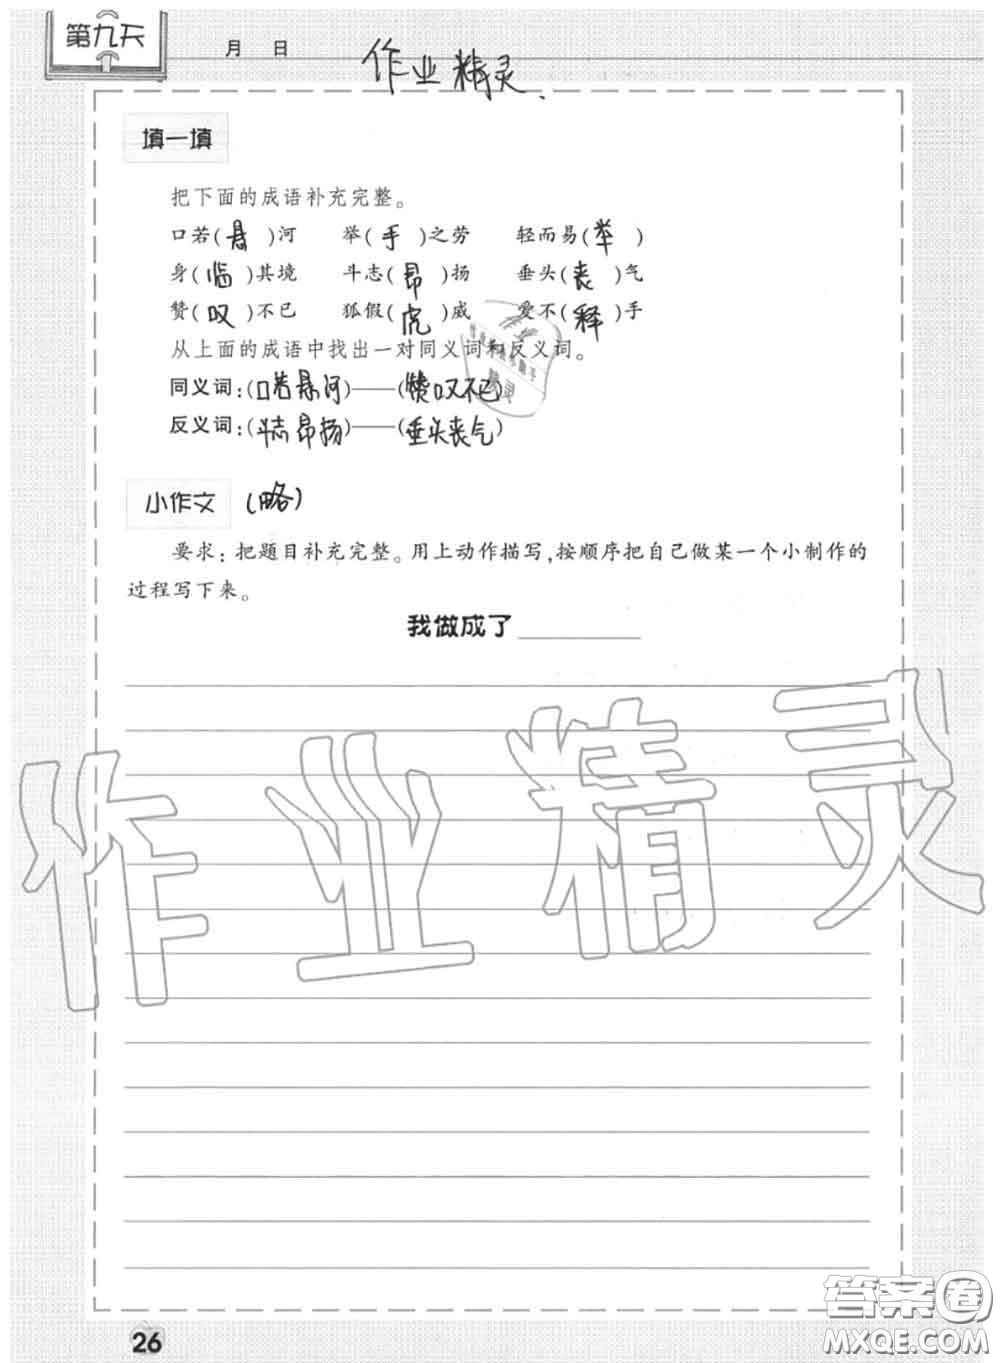 第九天
月 日
作业精灵
填一填
把下面的成语补充完整。
口若(悬)河 举(手)之劳 轻而易(举)
身(临)其境 斗志(昂)扬 垂头(丧)气
赞(叹)不已 狐假(虎)威 爱不(释)手
从上面的成语中找出一对同义词和反义词。
同义词:(口若悬河)——(赞叹不已)
反义词:(斗志昂扬)——(垂头丧气)
小作文 (略)
要求:把题目补充完整。用上动作描写,按顺序把自己做某一个小制作的
过程写下来。
我做成了
作业精灵
答案圈
MXQE.COM
26